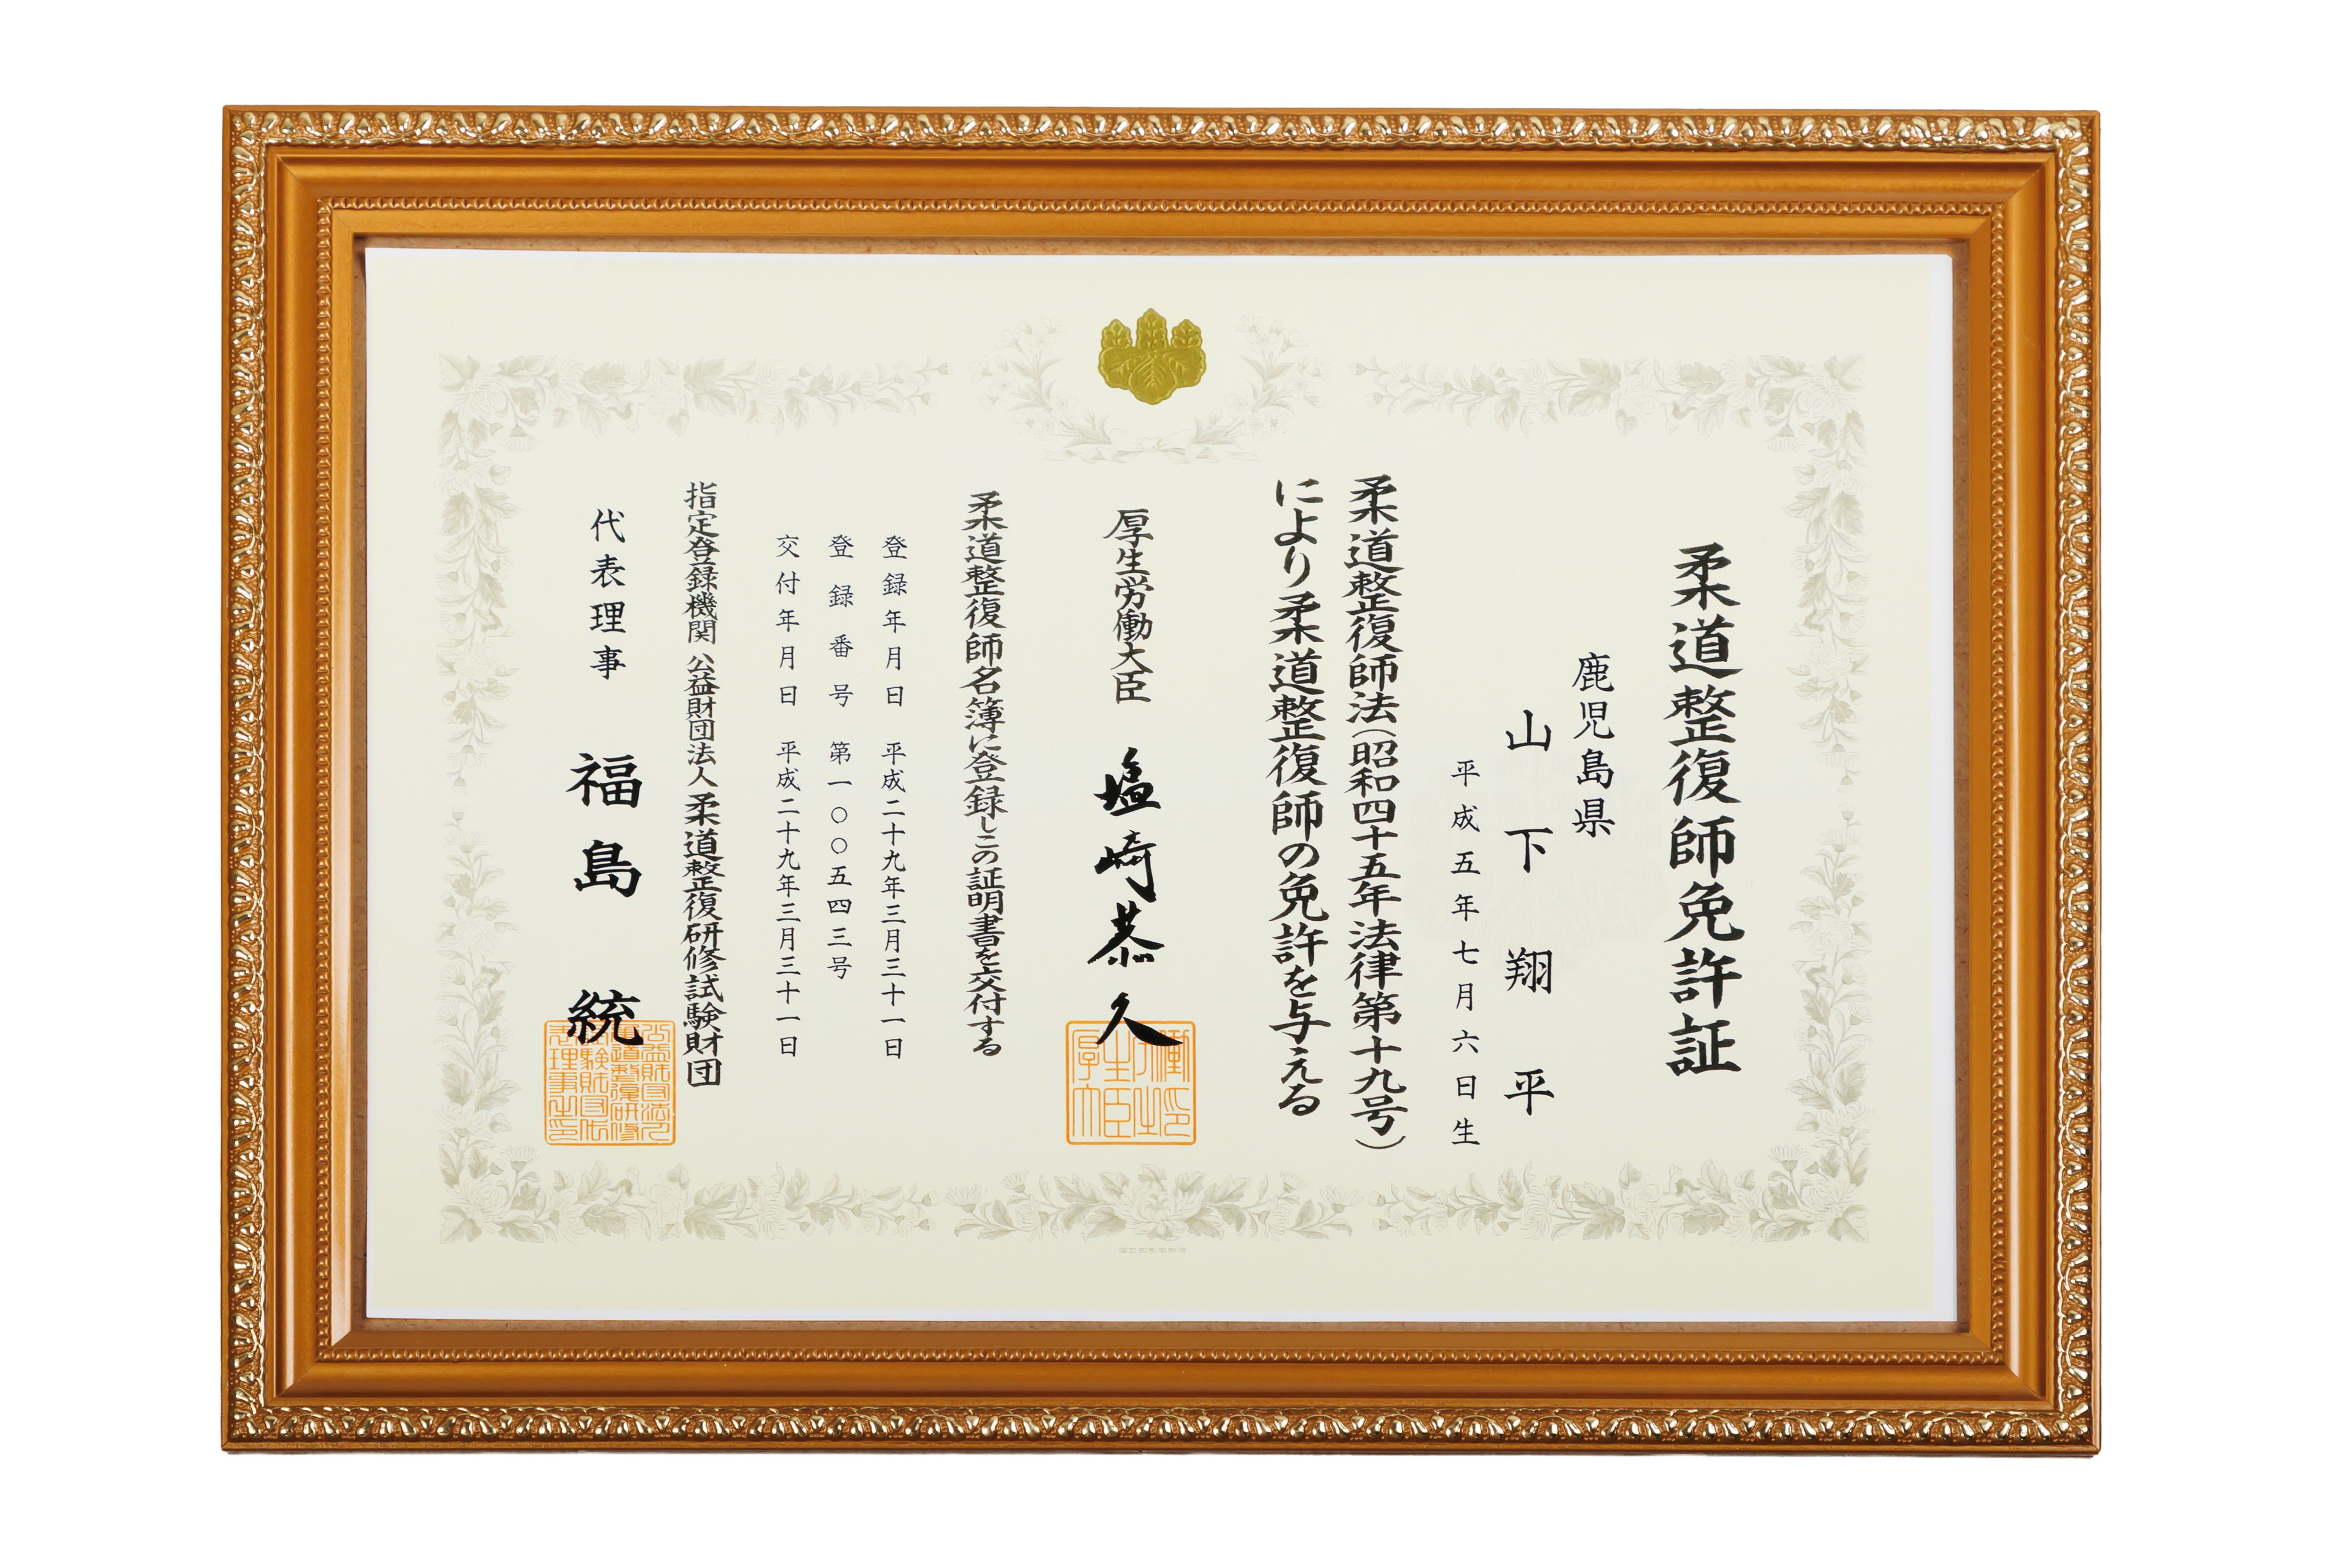 柔道整復師免許証
鹿児島県
山下翔平
平成五年七月六日生
柔道整復師法（昭和四十五年法律第十九号）
により柔道整復師の免許を与える
厚生労働大臣 塩崎恭久
柔道整復師名簿に登録しこの証明書を交付する
登録年月日 平成二十九年三月三十一日
登録番号 第一〇〇五四三号
交付年月日 平成二十九年三月三十一日
指定登録機関 公益財団法人 柔道整復研修試験財団
代表理事 福島統